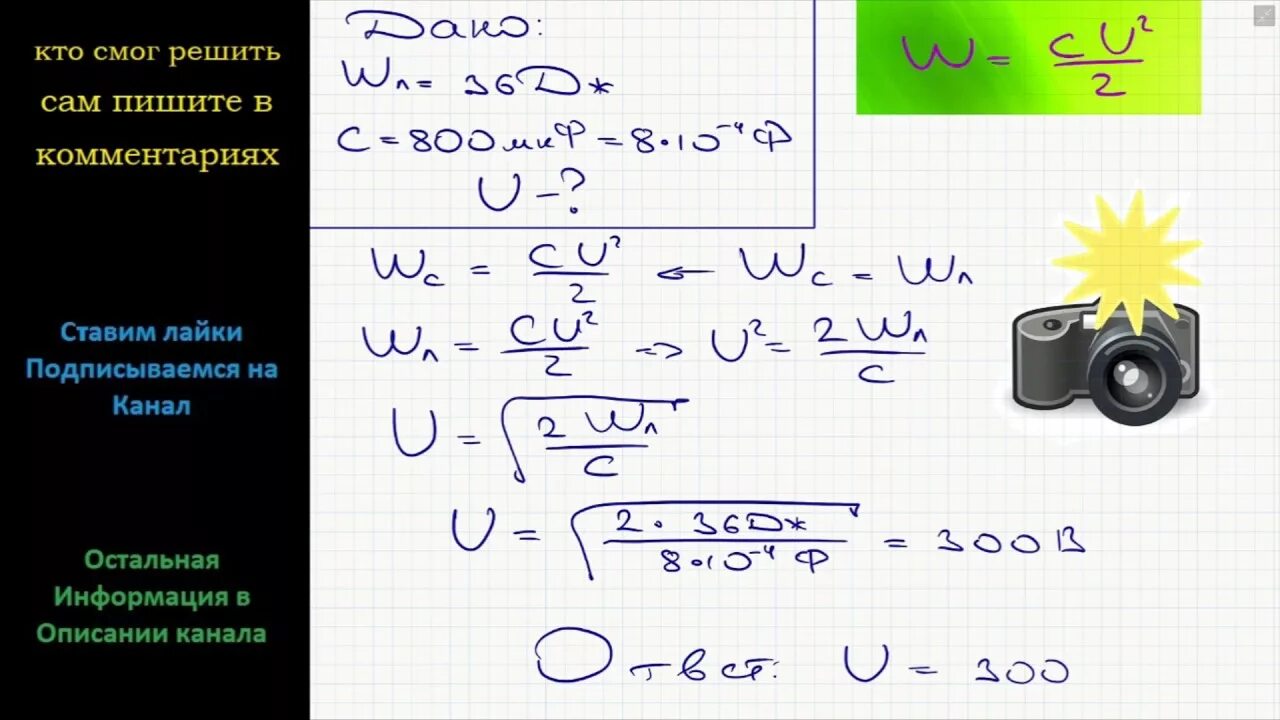 кто смог решить
сам пишите в
комментариях
Ставим лайки
Подписываемся на
Канал
Остальная
Информация в
Описании канала
Дано:
Wл = 36Дж
C = 800мкФ = 8·10⁻⁴Ф
U - ?
W = CU²/2
Wc = CU²/2 ← Wc = Wл
Wл = CU²/2 => U² = 2Wл/C
U = √(2Wл/C)
U = √(2·36Дж/8·10⁻⁴Ф) = 300В
Ответ: U = 300